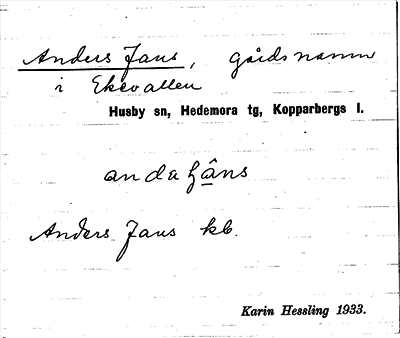 Anders Jans, gårdsnamn
i Ekevallen
Husby sn, Hedemora tg, Kopparbergs l.
Anders Jans kb.
Karin Hessling 1933.